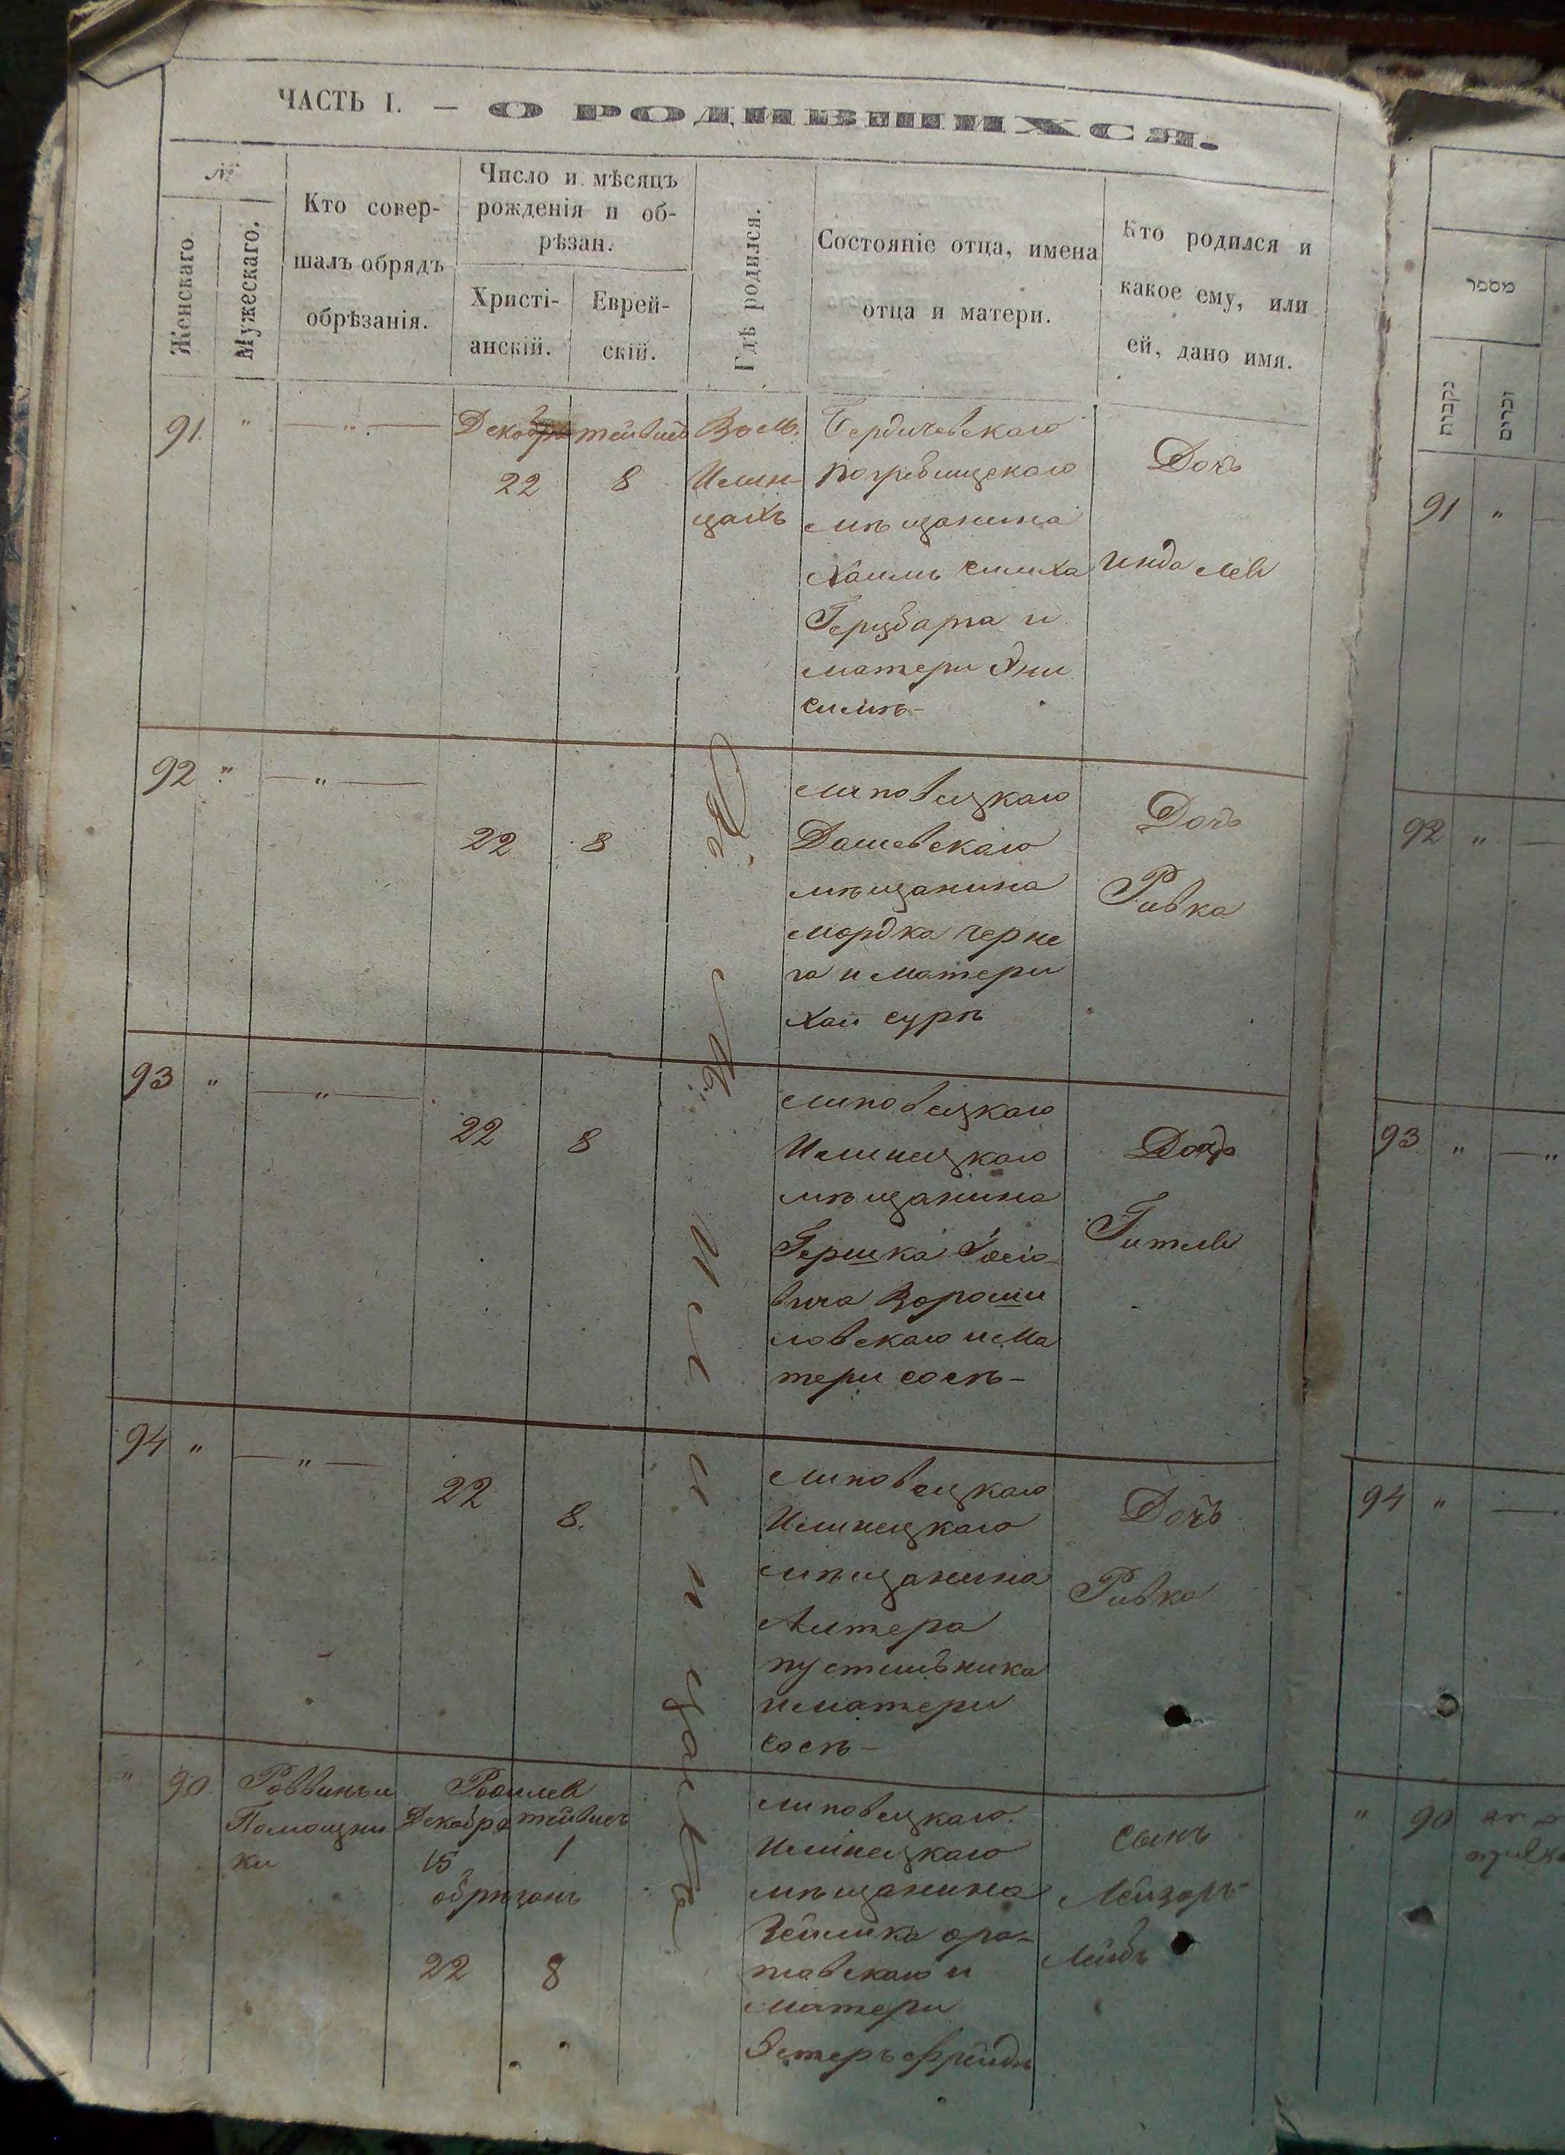 ЧАСТЬ I. — О РОДИВШИХСЯ.
№
Женскаго
Мужескаго.
Кто совер-
шалъ обрядъ
обрѣзанія.
Число и мѣсяцъ
рожденія и об-
рѣзан.
Христі-
анскій.
Еврей-
скій.
Гдѣ родился.
Состояніе отца, имена
отца и матери.
Кто родился и
какое ему, или
ей, дано имя.
91. " — " — Декабрь тейвисъ
22 8
Въ м.
Илин-
цахъ
Бердичевскаго
погребищскаго
мѣщанина
Хаимъ симха
Герцбарга и
матери Эни
симѣ-
Дочь
Инда леи
92 " — " —
22 8
Липовецкаго
Дашевскаго
мѣщанина
мордка черне
га и матери
хаи сурѣ
Дочь
Ривка
93 " — " —
22 8
Липовецкаго
Илинецкаго
мѣщанина
Гершка Іосіо-
вича Вороши
ловскаго и ма
тери сосѣ-
Дочь
Гитля
94 " — " —
22 8.
Липовецкаго
Илинецкаго
мѣщанина
Алтера
пустильника
и матери
сосѣ-
Дочь
Ривка
Въ м. Илинцахъ
" 90 Раввинъ и
Помощни
ки
Родился
Декабря тейвисъ
15 1
обрѣзанъ
22 8
Липовецкаго
Илинецкаго
мѣщанина
Зейлика ора-
товскаго и
матери
Эстеръ фрейды
сынъ
Лейзоръ-
Лейбъ
מספר
נקבות
זכרים
91 "
92 "
93 " — "
94 " —
" 90